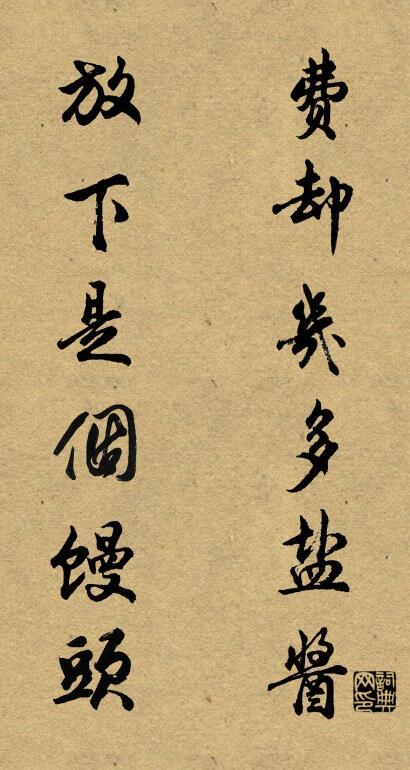 費却幾多盐醬
放下是個馒頭
詞典网印